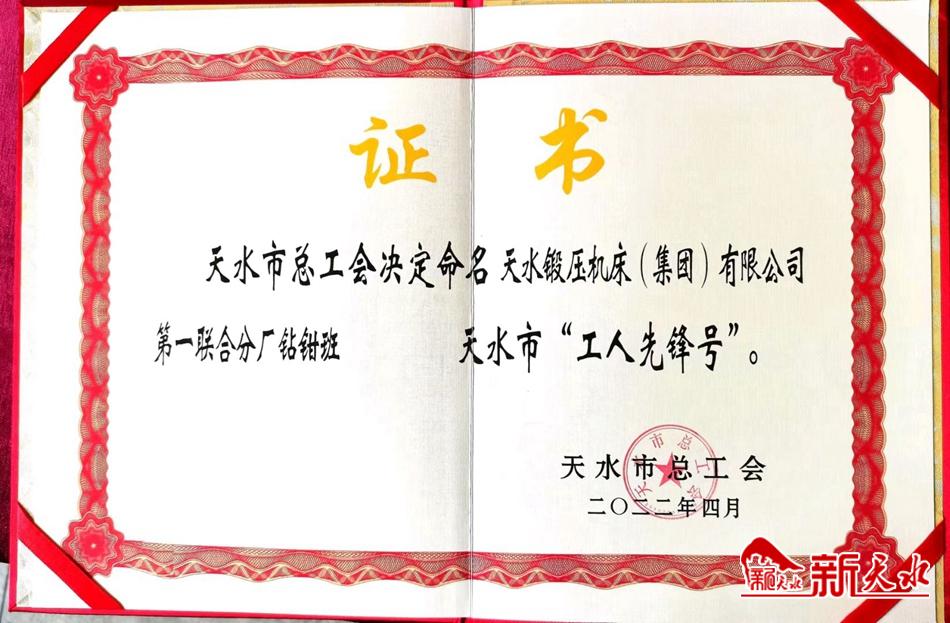 证书
天水市总工会决定命名 天水锻压机床（集团）有限公司
第一联合分厂钻钳班 天水市“工人先锋号”。
天水市总工会
天水市总工会
二〇二二年四月
新天水
新天水